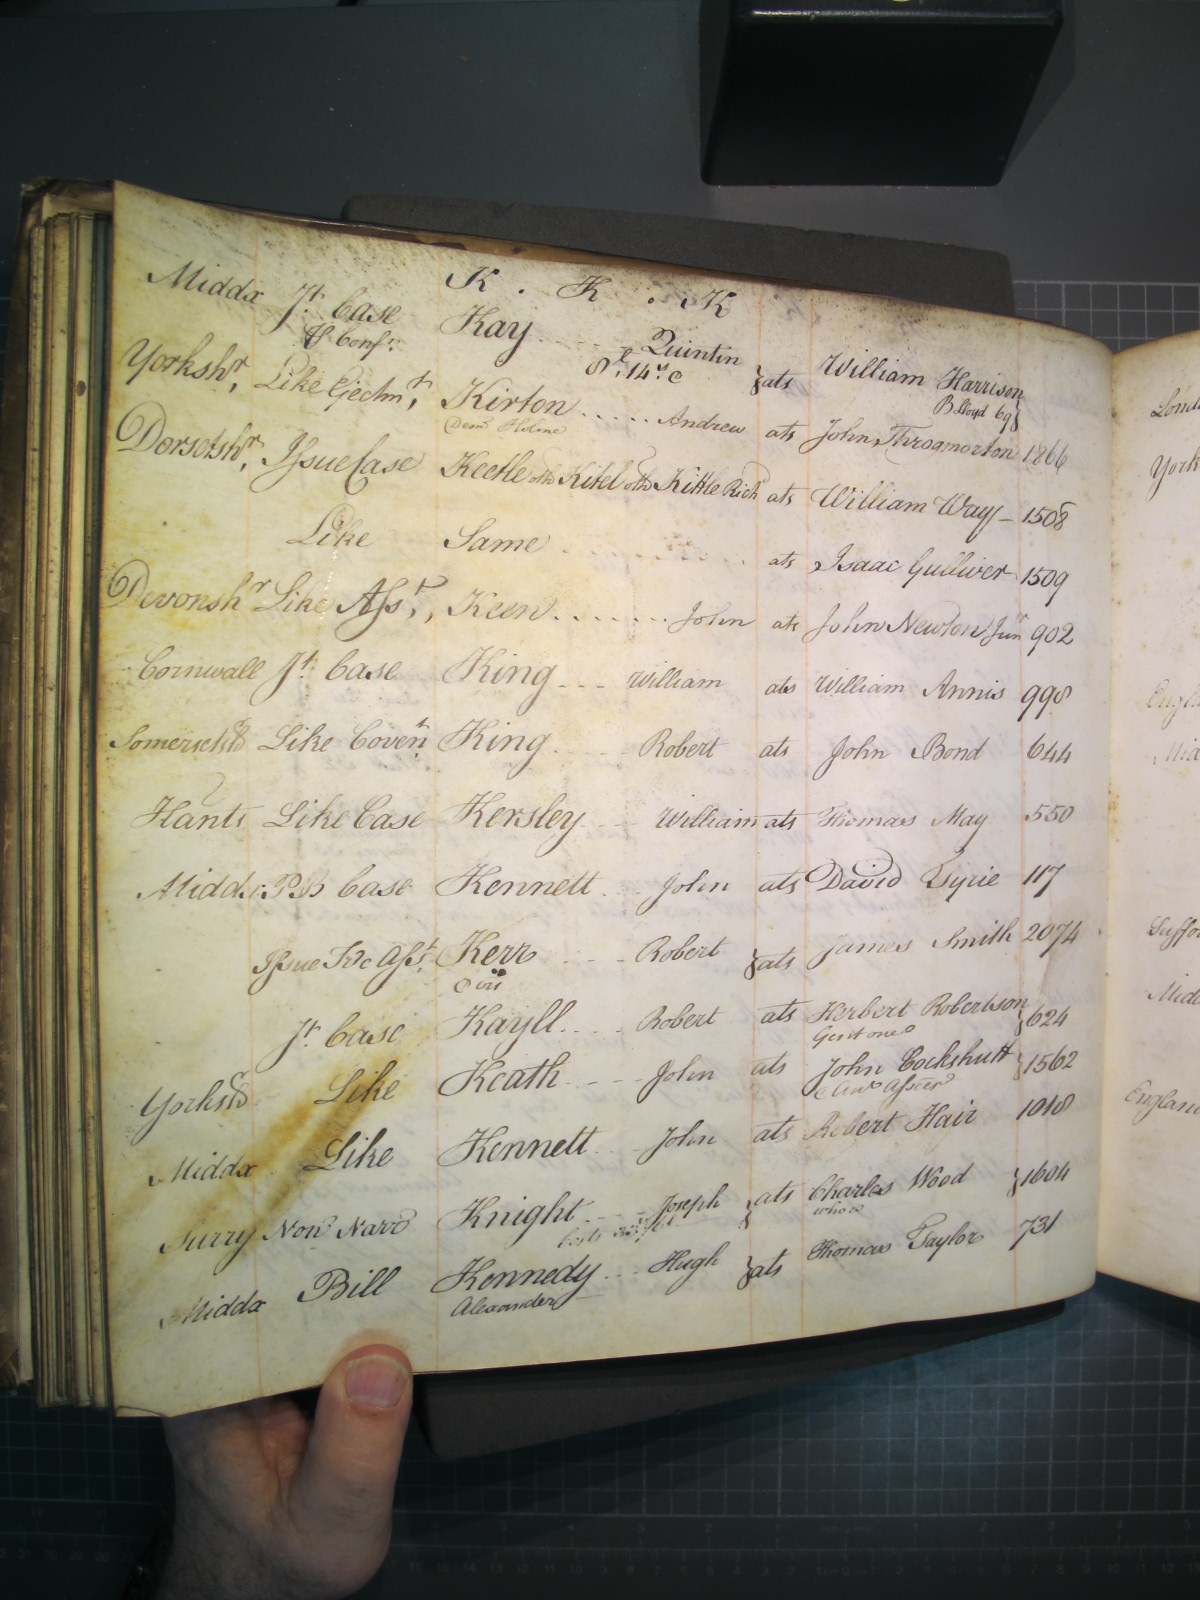 K . K . K
Middx Jt. Case Kay Quintin ats William Harrison
& Conf. 8£..14s. c B. Lloyd 69
Yorkshr, Like Ejectmt, Kirton Andrew ats John Throgmorton 1866
Demr Holme
Dorsetshr, Issue Case Keetle oths Kitel oths Kittle Richd ats William Way 1508
Like Same ats Isaac Gulliver 1509
Devonshr Like Asst, Keen John ats John Newton Junr 902
Cornwall Jt. Case King William ats William Annis 998
Somersetsh Like Covent King Robert ats John Bond 644
Hants Like Case Kersley William ats Thomas May 550
Middx P B Case Kennett John ats David 117
Issue Asst. Kerr Robert ats James Smith 2074
Jt. Case Kayll Robert ats Herbert Robertson 624
Gent one
Yorksh Like Keath John ats John Cockshutt 1562
Middx Like Kennett John ats Robert Hair 1018
Surry Non Narr Knight Joseph ats Charles Wood 1604
Costs
Middx Bill Kennedy Hugh ats Thomas Taylor 731
Alexander
Lond
York
Suffo
England